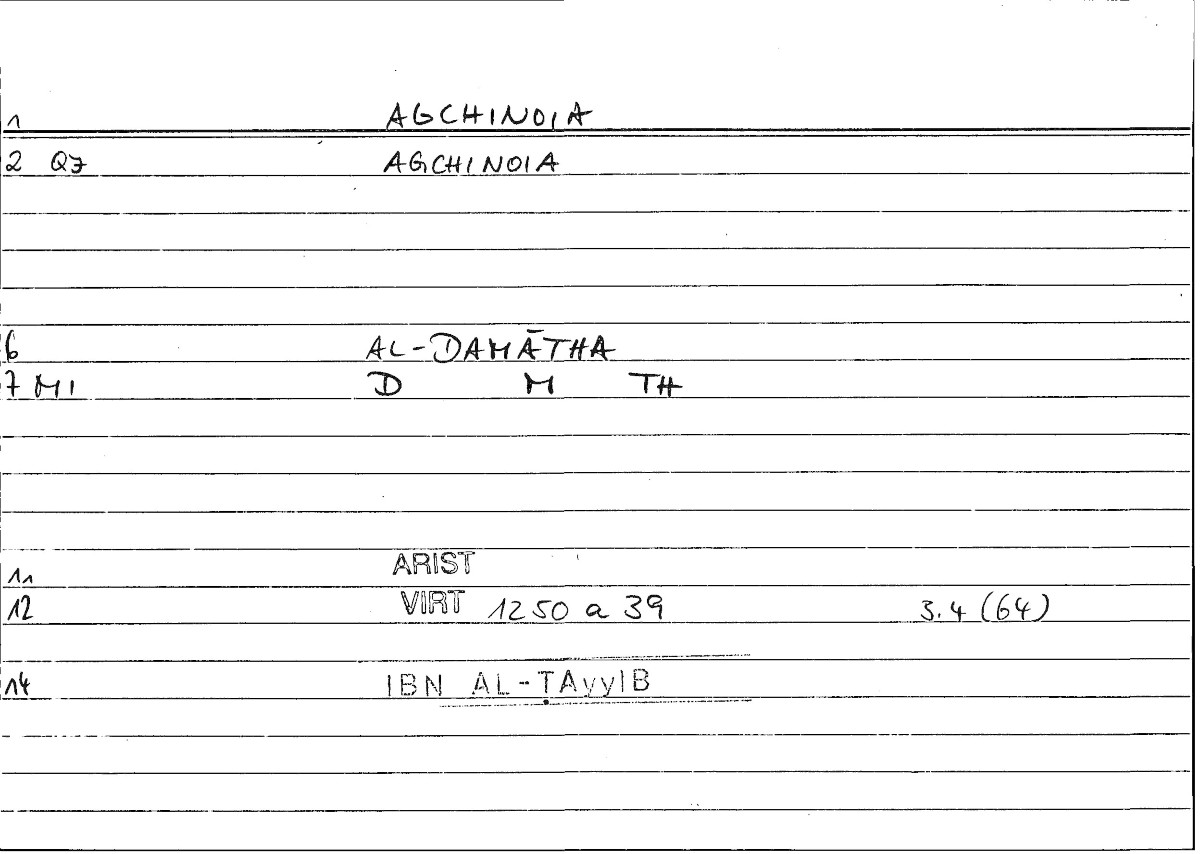 1 AGCHINOIA
2 Q7 AGCHINOIA
6 AL-DAMĀTHA
7 M1 D M TH
11 ARIST
12 VIRT 1250 a 39 3.4 (64)
14 IBN AL-ṬAyyIB